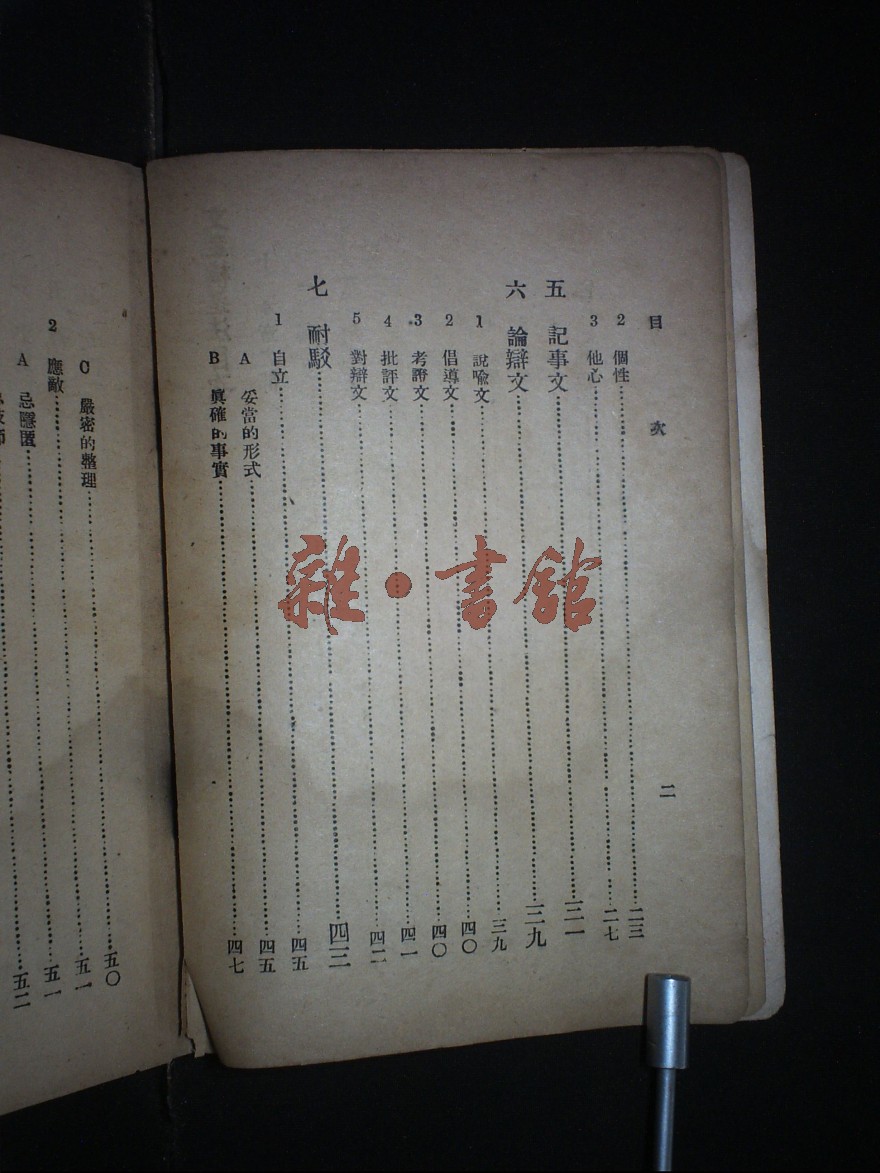 目次 二
2 個性 二三
3 他心 二七
五 記事文 三一
六 論辯文 三九
1 說喻文 三九
2 倡導文 四〇
3 考證文 四〇
4 批評文 四一
5 對辯文 四二
七 耐駁 四三
1 自立 四五
A 妥當的形式 四五
B 眞確的事實 四七
C 嚴密的整理 五〇
2 應敵 五一
A 忌隱匿 五一
五二
雜·書館